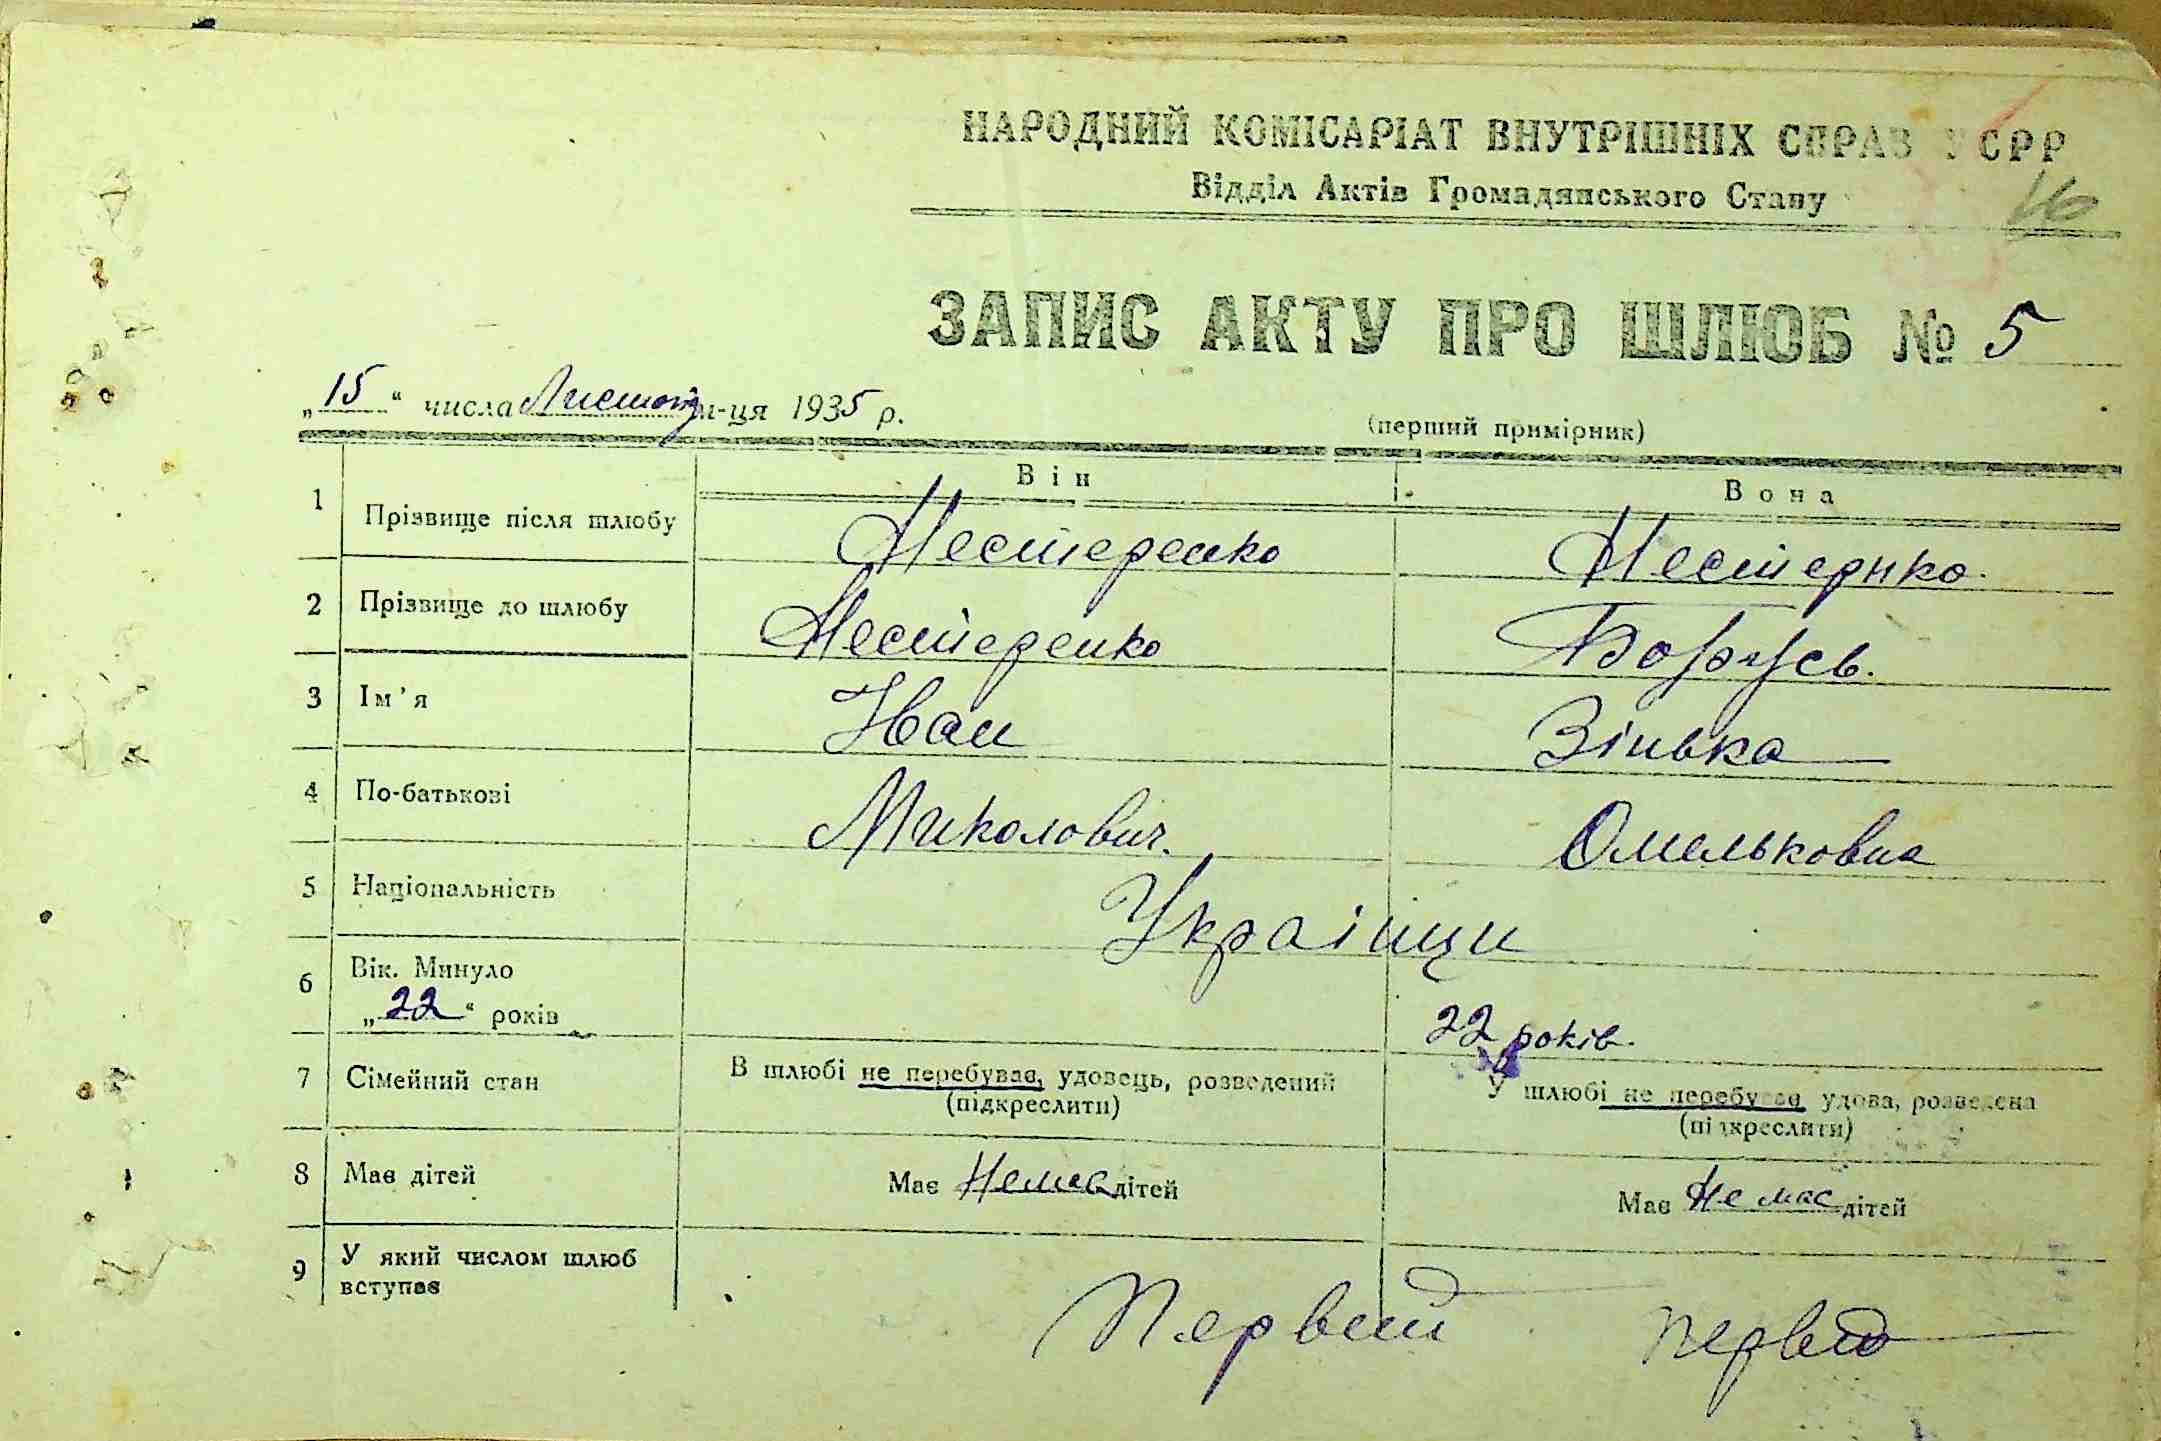 НАРОДНИЙ КОМІСАРІАТ ВНУТРІШНІХ СПРАВ УСРР
Відділ Актів Громадянського Стану
16
ЗАПИС АКТУ ПРО ШЛЮБ № 5
„15“ числа Листопад м-ця 1935 р.
(перший примірник)
Він Вона
1 Прізвище після шлюбу Нестеренко Нестернко.
2 Прізвище до шлюбу Нестеренко
3 Ім'я Іван Зінька
4 По-батькові Миколович. Омельковна
5 Національність Українци
6 Вік. Минуло
„22“ років 22 років.
7 Сімейний стан В шлюбі не перебуває, удовець, розведений У шлюбі не перебуває удова, розведена
(підкреслити) (підкреслити)
8 Має дітей Має Немає дітей Має Не має дітей
9 У який числом шлюб
вступає Первий